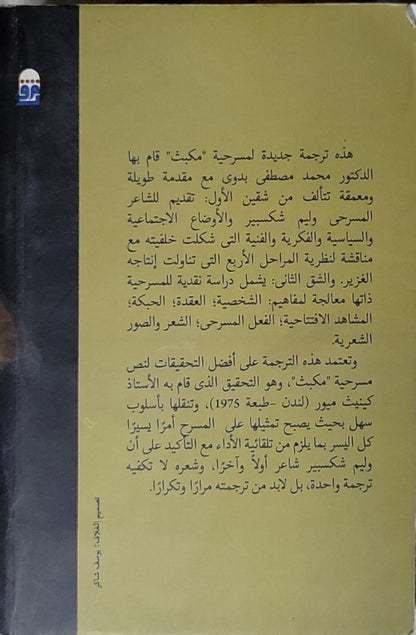 هذه ترجمة جديدة لمسرحية "مكبث" قام بها
الدكتور محمد مصطفى بدوى مع مقدمة طويلة
ومعمقة تتألف من شقين الأول: تقديم للشاعر
المسرحى وليم شكسبير والأوضاع الاجتماعية
والسياسية والفكرية والفنية التى شكلت خلفيته مع
مناقشة لنظرية المراحل الأربع التى تناولت إنتاجه
الغزير. والشق الثانى: يشمل دراسة نقدية للمسرحية
ذاتها معالجة لمفاهيم: الشخصية؛ العقدة؛ الحبكة؛
المشاهد الافتتاحية؛ الفعل المسرحى؛ الشعر والصور
الشعرية.
وتعتمد هذه الترجمة على أفضل التحقيقات لنص
مسرحية "مكبث"، وهو التحقيق الذى قام به الأستاذ
كينيث ميور (لندن -طبعة 1975)، وتنقلها بأسلوب
سهل بحيث يصبح تمثيلها على المسرح أمرًا يسيرًا
كل اليسر بما يلزم من تلقائية الأداء مع التأكيد على أن
وليم شكسبير شاعر أولاً وآخرًا، وشعره لا تكفيه
ترجمة واحدة، بل لابد من ترجمته مرارًا وتكرارًا.
تصميم الغلاف: يوسف شاكر